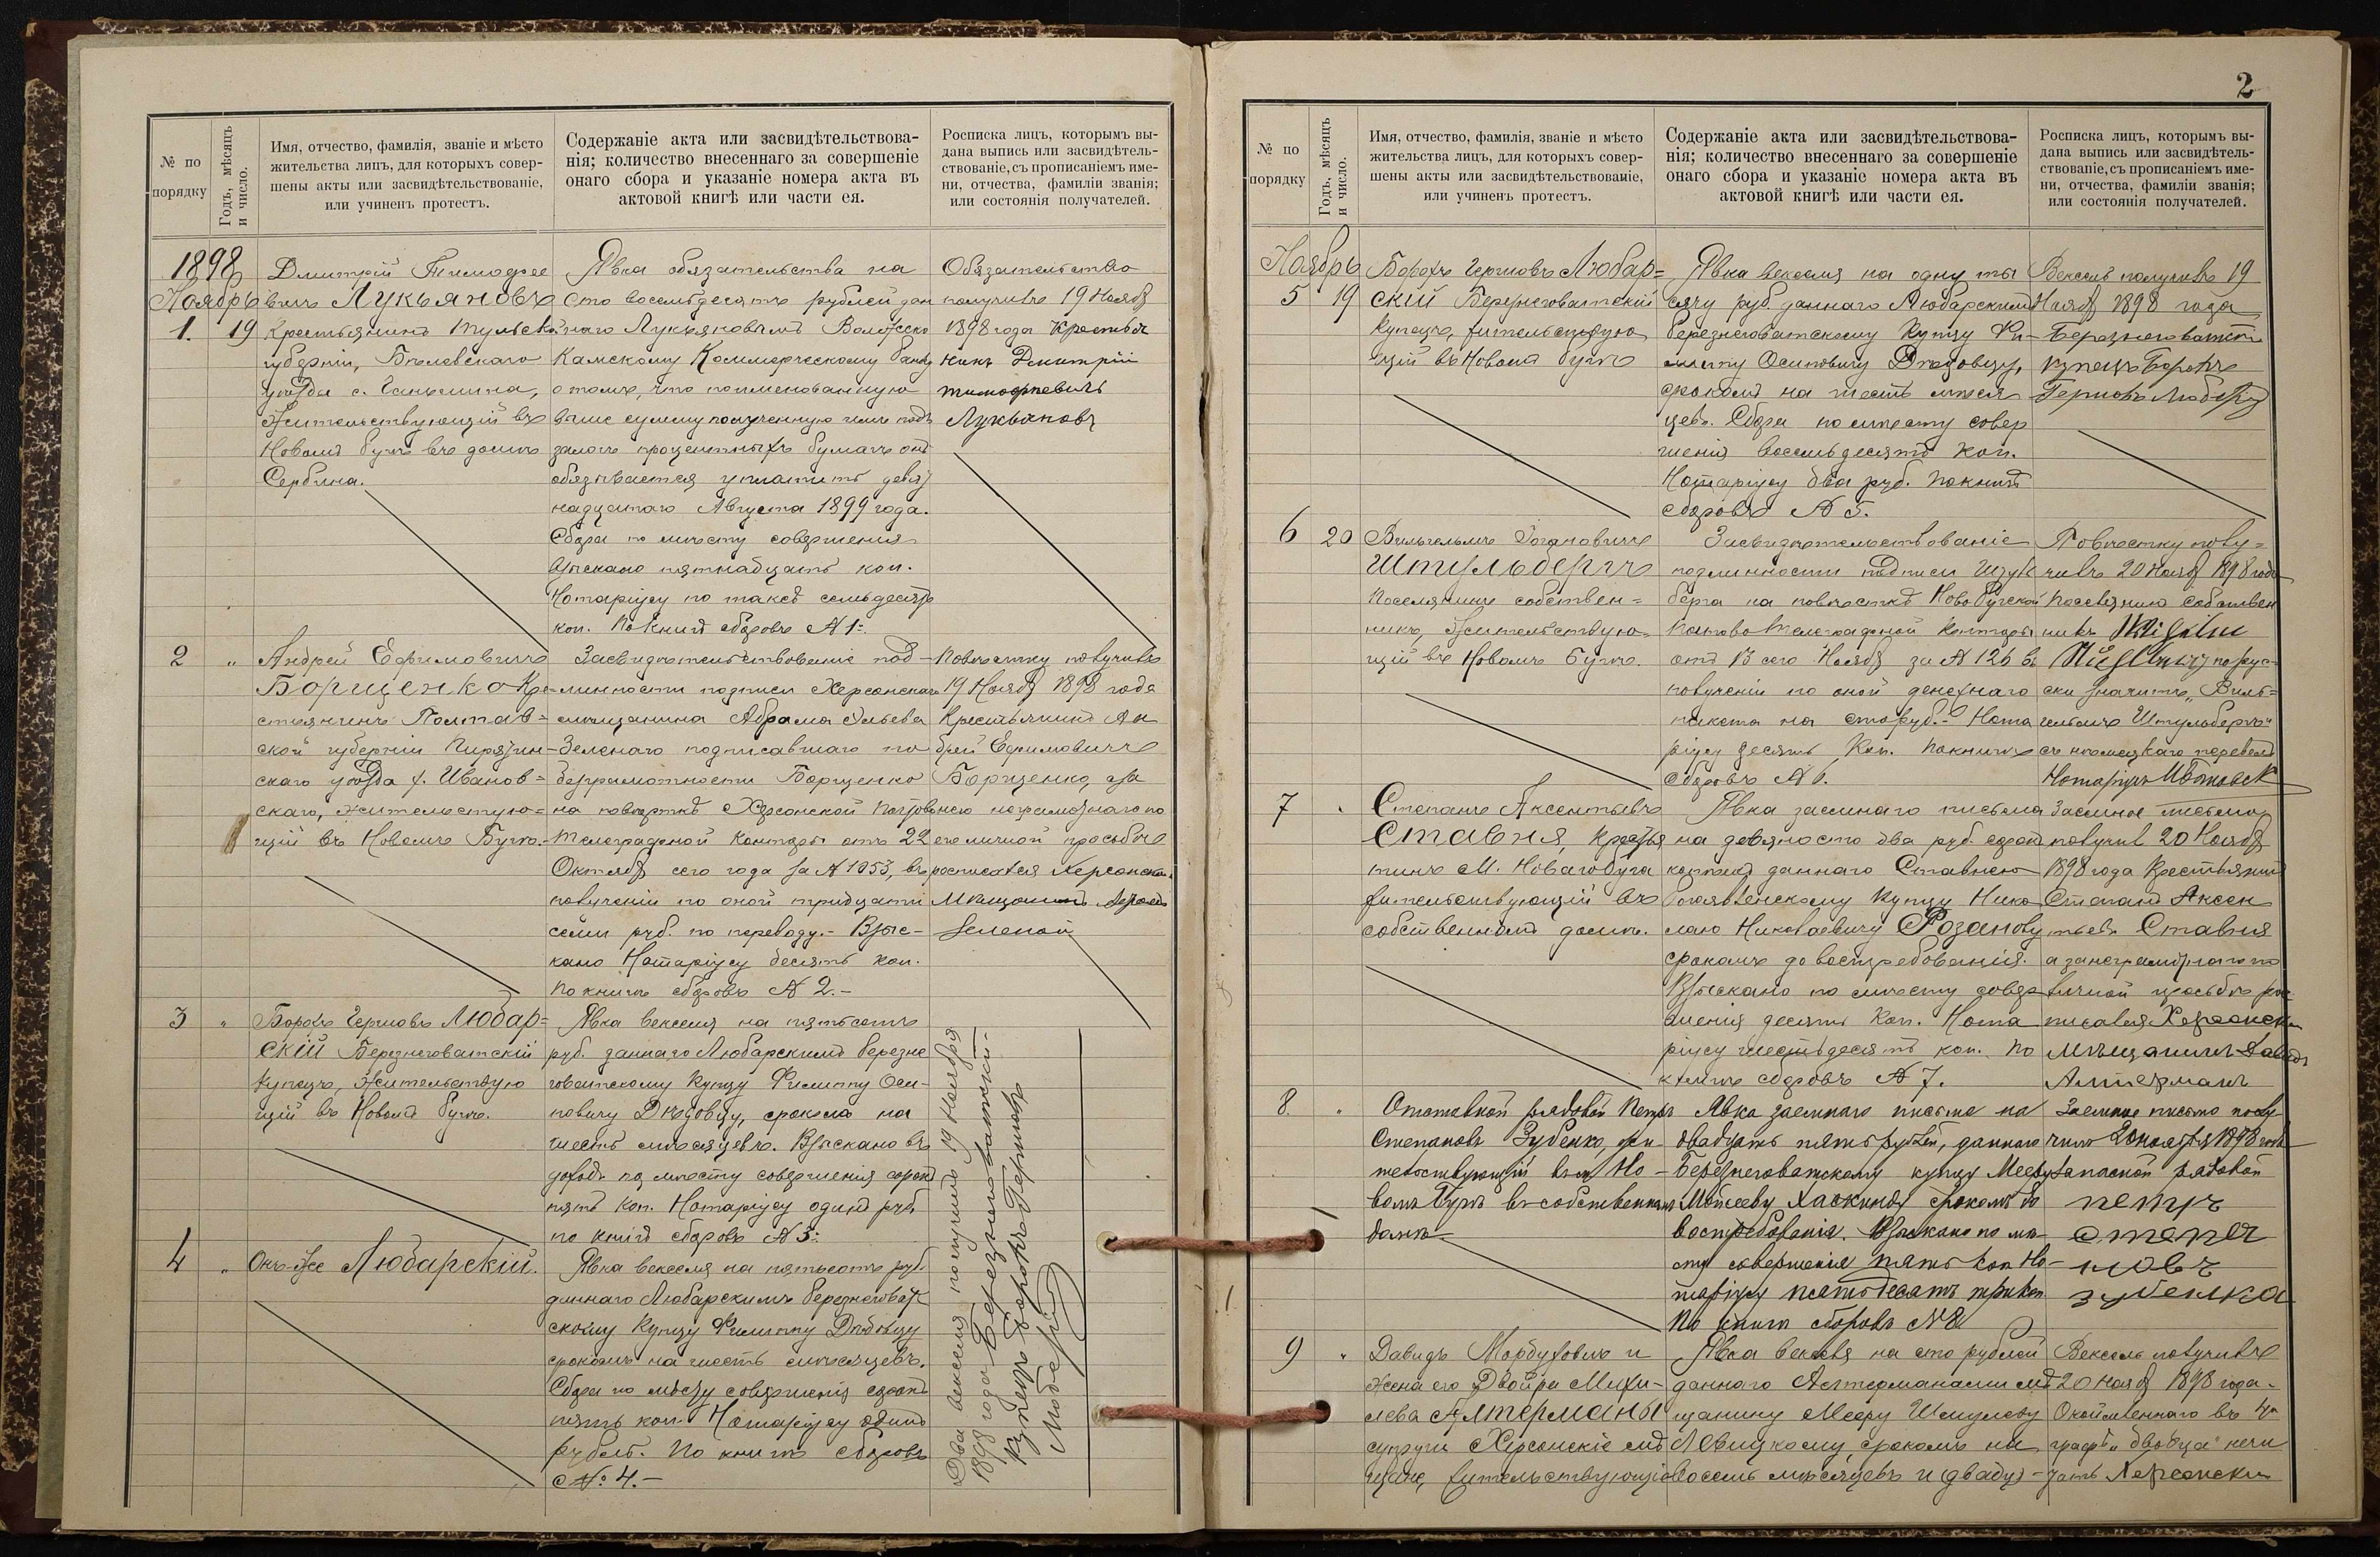 № по порядку
Годъ, мѣсяцъ и число.
Имя, отчество, фамилія, званіе и мѣсто
жительства лицъ, для которыхъ совер-
шены акты или засвидѣтельствованіе,
или учиненъ протестъ.
Содержаніе акта или засвидѣтельствова-
нія; количество внесеннаго за совершеніе
онаго сбора и указаніе номера акта въ
актовой книгѣ или части ея.
Росписка лицъ, которымъ вы-
дана выпись или засвидѣтель-
ствованіе, съ прописаніемъ име-
ни, отчества, фамиліи званія;
или состоянія получателей.
1898
Ноябрь
1. 19
Дмитрій Тимофее
вичъ Лукьяновъ
Крестьянинъ Тульской
губерніи, Бѣлевскаго
уѣзда с.
Жительствующій въ
Новомъ Бугѣ въ домѣ
Сербина.
Явка обязательства на
сто восемьдесятъ рублей дан
наго Лукьяновымъ Волжско
Камскому Коммерческому банку
о томъ, что поименованную
выше сумму полученную имъ подъ
залогъ процентныхъ бумагъ онъ
обязывается уплатить девят
надцатаго Августа 1899 года.
Сбора по мѣсту совершенія
взыскано пятнадцать коп.
Нотаріусу по таксѣ семьдесятъ
коп. По книгѣ сборовъ № 1.
Обязательство
получилъ 19 Ноября
1898 года Крестья
нинъ Дмитрій
Тимофѣевичъ
Лукьяновъ
2 "
Андрей Ефимовичъ
Борщенко Кре-
стьянинъ Полтав-
ской губерніи Пирятин-
скаго уѣзда х. Иванов-
скаго, жительствую-
щій въ Новомъ Бугѣ.
Засвидѣтельствованіе под-
линности подписи Херсонскаго
мѣщанина Абрама
Зеленаго подписавшаго по
безграмотности Борщенко
на повѣсткѣ Херсонской Почтово
Телеграфной Конторы отъ 22
Октября сего года за № 1053, въ
полученіи по оной тридцати
семи руб. по переводу.- Взыс-
кано Нотаріусу десять коп.
По книгѣ сборовъ № 2.-
Повѣстку получилъ
19 Ноября 1898 года
Крестьянинъ Ан
дрей Ефимовичъ
Борщенко, за
него неграмотнаго по
его личной просьбѣ
росписался Херсонскій
Мѣщанинъ Абрамъ
Зеленой
3 "
Борохъ Гершовъ Любар-
скій Березнеговатскій
купецъ, жительствую
щій въ Новомъ Бугѣ.
Явка векселя на пятьсотъ
руб. даннаго Любарскимъ Березне
говатскому Купцу Филиппу Оси-
повичу Дѣдовцу, срокомъ на
шесть мѣсяцевъ. Взыскано въ
доходъ по мѣсту совершенія сорокъ
пять коп. Нотаріусу одинъ руб.
по книгѣ сборовъ № 3.
4 "
Онъ-же Любарскій.
Явка векселя на пятьсотъ руб.
даннаго Любарскимъ Березнеговат
скому Купцу Филиппу Дѣдовцу
срокомъ на шесть мѣсяцевъ.
Сбора по мѣсту совершенія сорокъ
пять коп. Нотаріусу одинъ
рубль. По книгѣ сборовъ
№ 4.-
Два векселя получилъ 19 Ноября
1898 года Березнеговатскій
купецъ Борохъ Гершовъ
2
№ по порядку
Годъ, мѣсяцъ и число.
Имя, отчество, фамилія, званіе и мѣсто
жительства лицъ, для которыхъ совер-
шены акты или засвидѣтельствованіе,
или учиненъ протестъ.
Содержаніе акта или засвидѣтельствова-
нія; количество внесеннаго за совершеніе
онаго сбора и указаніе номера акта въ
актовой книгѣ или части ея.
Росписка лицъ, которымъ вы-
дана выпись или засвидѣтель-
ствованіе, съ прописаніемъ име-
ни, отчества, фамиліи званія;
или состоянія получателей.
Ноябрь
5 19
Борохъ Гершовъ Любар-
скій Березнеговатскій
купецъ, жительствую
щій въ Новомъ Бугѣ
Явка векселя на одну ты
сячу руб. даннаго Любарскимъ
Березнеговатскому Купцу Фи-
липпу Осиповичу Дѣдовцу,
срокомъ на шесть мѣся
цевъ. Сбора по мѣсту совер
шенія восемьдесятъ коп.
Нотаріусу два руб. По книгѣ
сборовъ № 5.
Вексель получилъ 19
Ноября 1898 года
Березнеговатскій
купецъ Борохъ
Гершовъ
6 20
Вильгельмъ Іогановичъ
Штульбергъ
Поселянинъ собствен-
никъ, жительствую-
щій въ Новомъ Бугѣ.
Засвидѣтельствованіе
подлинности подписи Штуль
берга на повѣсткѣ Ново Бугской
Почтово Телеграфной Конторы
отъ 13 сего Ноября за № 126 въ
полученіи по оной денежнаго
пакета на сто руб.- Нота
ріусу десять Коп. По книгѣ
сборовъ № 6.
Повѣстку полу-
чилъ 20 Ноября 1898 года
Поселянинъ собствен
никъ
по рус-
ски значитъ "Виль-
гельмъ Штульбергъ"
съ нѣмецкаго перевелъ
Нотаріусъ
7 "
Степанъ Аксентьевъ
Ставня, Крестья
нинъ м. Новаго Буга
жительствующій въ
собственномъ домѣ.
Явка заемнаго письма
на девяносто два руб. сорокъ
копѣекъ даннаго Ставнею
Богоявленскому Купцу Нико
лаю Николаевичу Розанову
срокомъ до востребованія.
Взыскано по мѣсту совер
шенія десять Коп. Нота
ріусу шестьдесятъ коп. По
книгѣ сборовъ № 7.
Заемное письмо
получилъ 20 Ноября
1898 года Крестьянинъ
Степанъ Аксен
тьевъ Ставня
а за неграмотнаго по
личной просьбѣ рос
писался Херсонскій
Мѣщанинъ Давидъ
Алтерманъ
8. "
Отставной рядовой Петръ
Степановъ Зубенко, жи-
тельствующій въ м. Но-
вомъ Бугѣ въ собственномъ
домѣ
Явка заемнаго письма на
двадцать пять рублей, даннаго
Березнеговатскому купцу Мееру
Мойсееву Хаскинду срокомъ до
востребованія. Взыскано по мѣ-
сту совершенія пять коп. Но-
таріусу пятьдесятъ три коп.
По книгѣ сборовъ № 8
Заемное письмо полу-
чилъ 20 ноября 1898 года
Запасной рядовой
петръ
степа
новъ
зубенка
9 "
Давидъ Мордуховъ и
жена его Двойра Михи-
лева Алтерманы
супруги Херсонскіе мѣ
щане, жительствующіе
Явка векселя на сто рублей
даннаго Алтерманами мѣ
щанину Мееру Шмулеву
Левицкому срокомъ на
восемь мѣсяцевъ и (двадц)-
Вексель получилъ
20 Ноября 1898 года.
Окаймленнаго въ 4й
графѣ "двадца" нечи
тать Херсонскій